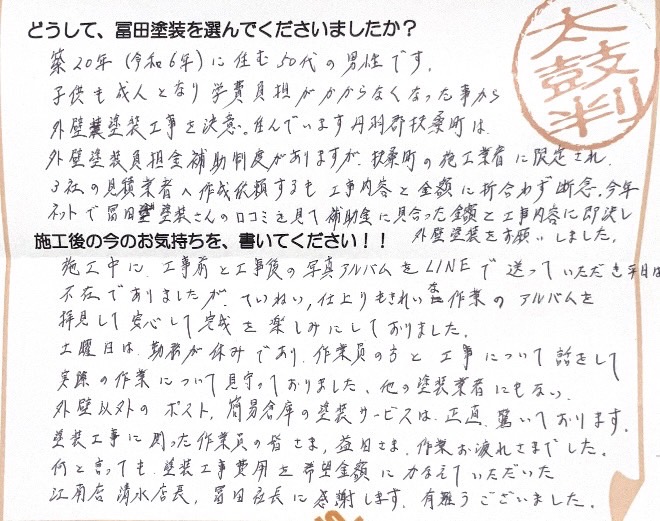 どうして、冨田塗装を選んでくださいましたか？
太鼓判
築20年(令和6年)に住む50代の男性です。
子供も成人となり学費負担がかからなくなった事から
外壁塗装工事を決意。住んでいます丹羽郡扶桑町は
外壁塗装負担金補助制度がありますが、扶桑町の施工業者に限定され、
3社の見積業者へ作成依頼するも工事内容と金額に折合わず断念、今年
ネットで冨田塗装さんの口コミを見て補助金に見合った金額と工事内容に即決し
外壁塗装をお願いしました。
施工後の今のお気持ちを、書いてください！！
施工中に、工事前と工事後の写真アルバムをLINEで送っていただき平日は
不在でありましたが、ていねい、仕上りもきれいな作業のアルバムを
拝見して安心して完成を楽しみにしておりました。
土曜日は、勤務が休みであり、作業員の方と工事について話をして
実際の作業について見守っておりました、他の塗装業者にもない、
外壁以外のポスト、簡易倉庫の塗装サービスは、正直、驚いております。
塗装工事に関った作業員の皆さま、益田さま、作業お疲れさまでした。
何と言っても、塗装工事費用を希望金額にかなえていただいた
江南店 清水店長、冨田社長に感謝します、有難うございました。